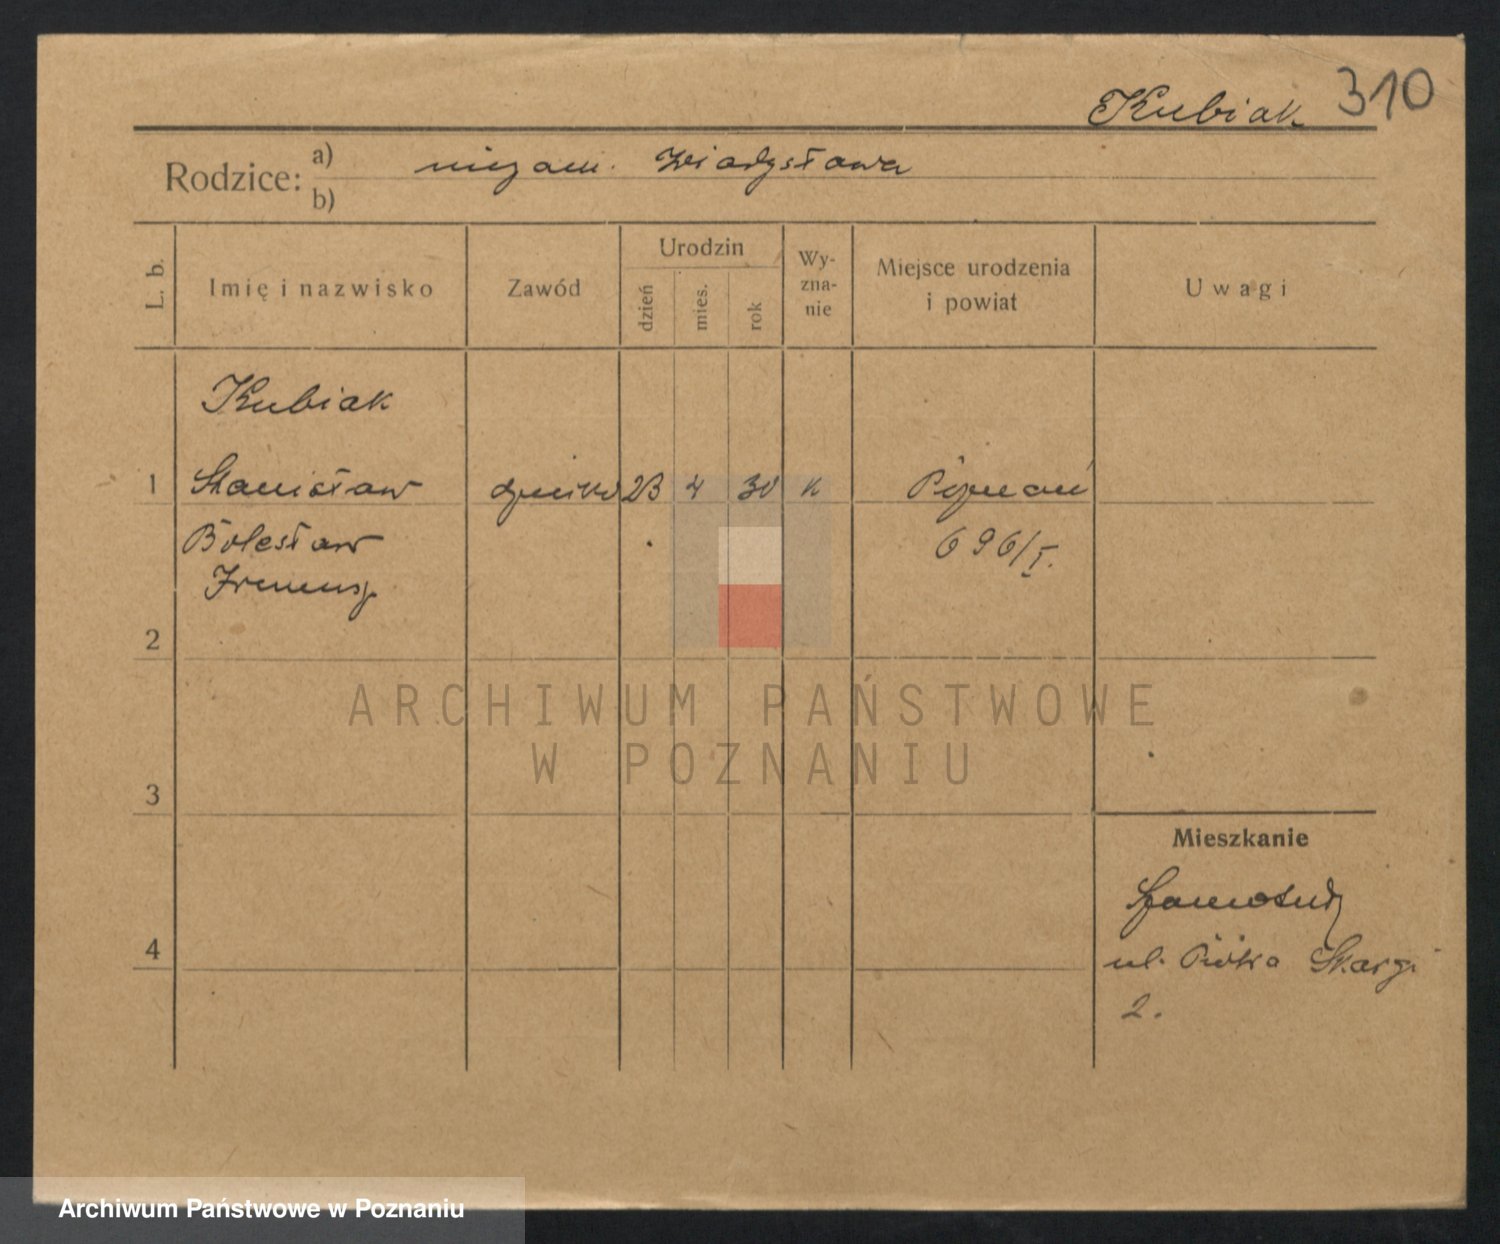 Kubiak 310
Rodzice: a) niezam. Władysława
b)
L. b.
Imię i nazwisko
Zawód
Urodzin
dzień
mies.
rok
Wy-
zna-
nie
Miejsce urodzenia
i powiat
Uwagi
Kubiak
1 Stanisław 23 4 30 k Poznań
Bolesław 696/I.
Ireneusz
2
ARCHIWUM PAŃSTWOWE
W POZNANIU
3
Mieszkanie
Szamotuły
4
ul. Piotra Skargi
2.
Archiwum Państwowe w Poznaniu